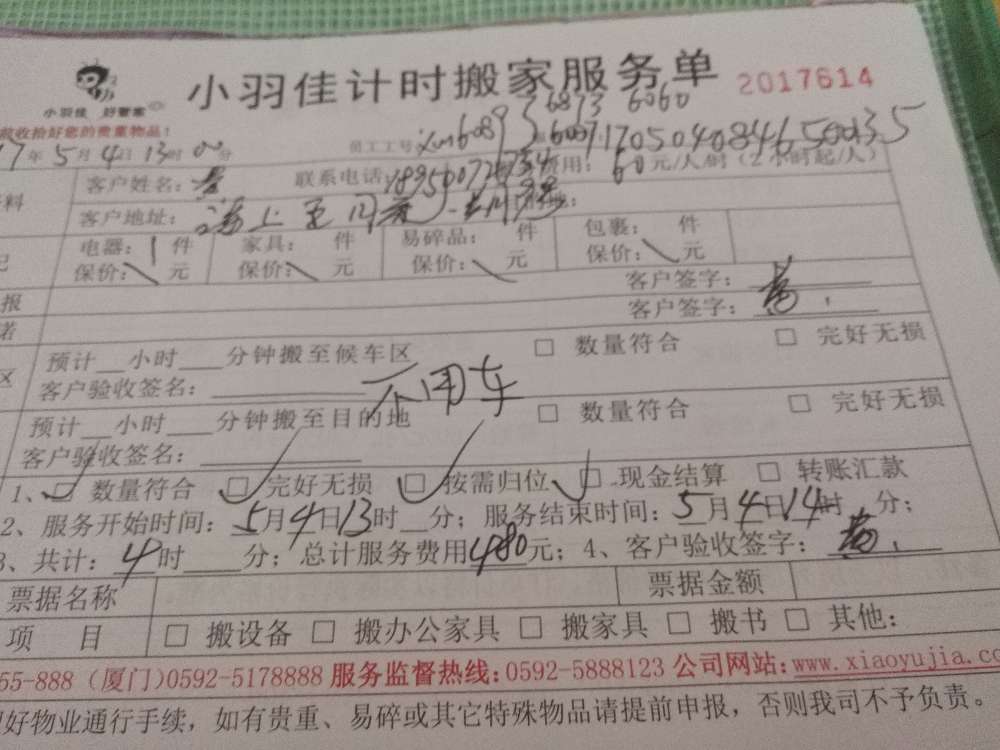 小羽佳计时搬家服务单 2017614
小羽佳 好管家
收拾好您的贵重物品!
17年5月4日13时00分 员工工号: 6089 6873 6060
170504084650035
费用: 60元/人/时(2小时起/人)
客户姓名: 联系电话:
客户地址: 海上至
电器: 1件 家具: 件 易碎品: 件 包裹: 件
保价: 元 保价: 元 保价: 元 保价: 元
客户签字:
报 客户签字:
诺
预计 小时 分钟搬至候车区 □ 数量符合 □ 完好无损
区 客户验收签名: 不用车
预计 小时 分钟搬至目的地 □ 数量符合 □ 完好无损
客户验收签名:
1、□ 数量符合 □ 完好无损 □ 按需归位 □ 现金结算 □ 转账汇款
2、服务开始时间: 5月4日13时 分; 服务结束时间: 5月4日14时 分;
3、共计: 4时 分; 总计服务费用480元; 4、客户验收签字:
票据名称 票据金额
项 目 □ 搬设备 □ 搬办公家具 □ 搬家具 □ 搬书 □ 其他:
55-888 (厦门)0592-5178888 服务监督热线:0592-5888123 公司网站:www.xiaoyujia.co
好物业通行手续,如有贵重、易碎或其它特殊物品请提前申报,否则我司不予负责。